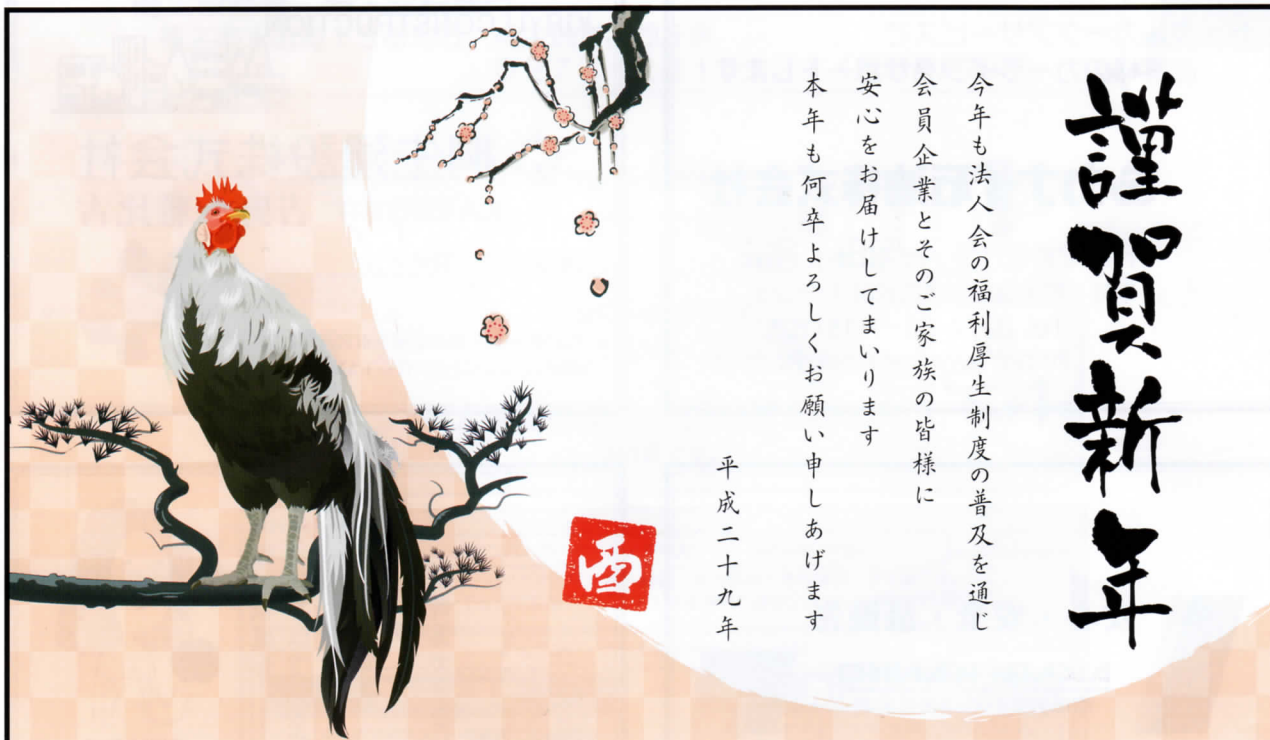 謹賀新年
今年も法人会の福利厚生制度の普及を通じ
会員企業とそのご家族の皆様に
安心をお届けしてまいります
本年も何卒よろしくお願い申しあげます
平成二十九年
酉